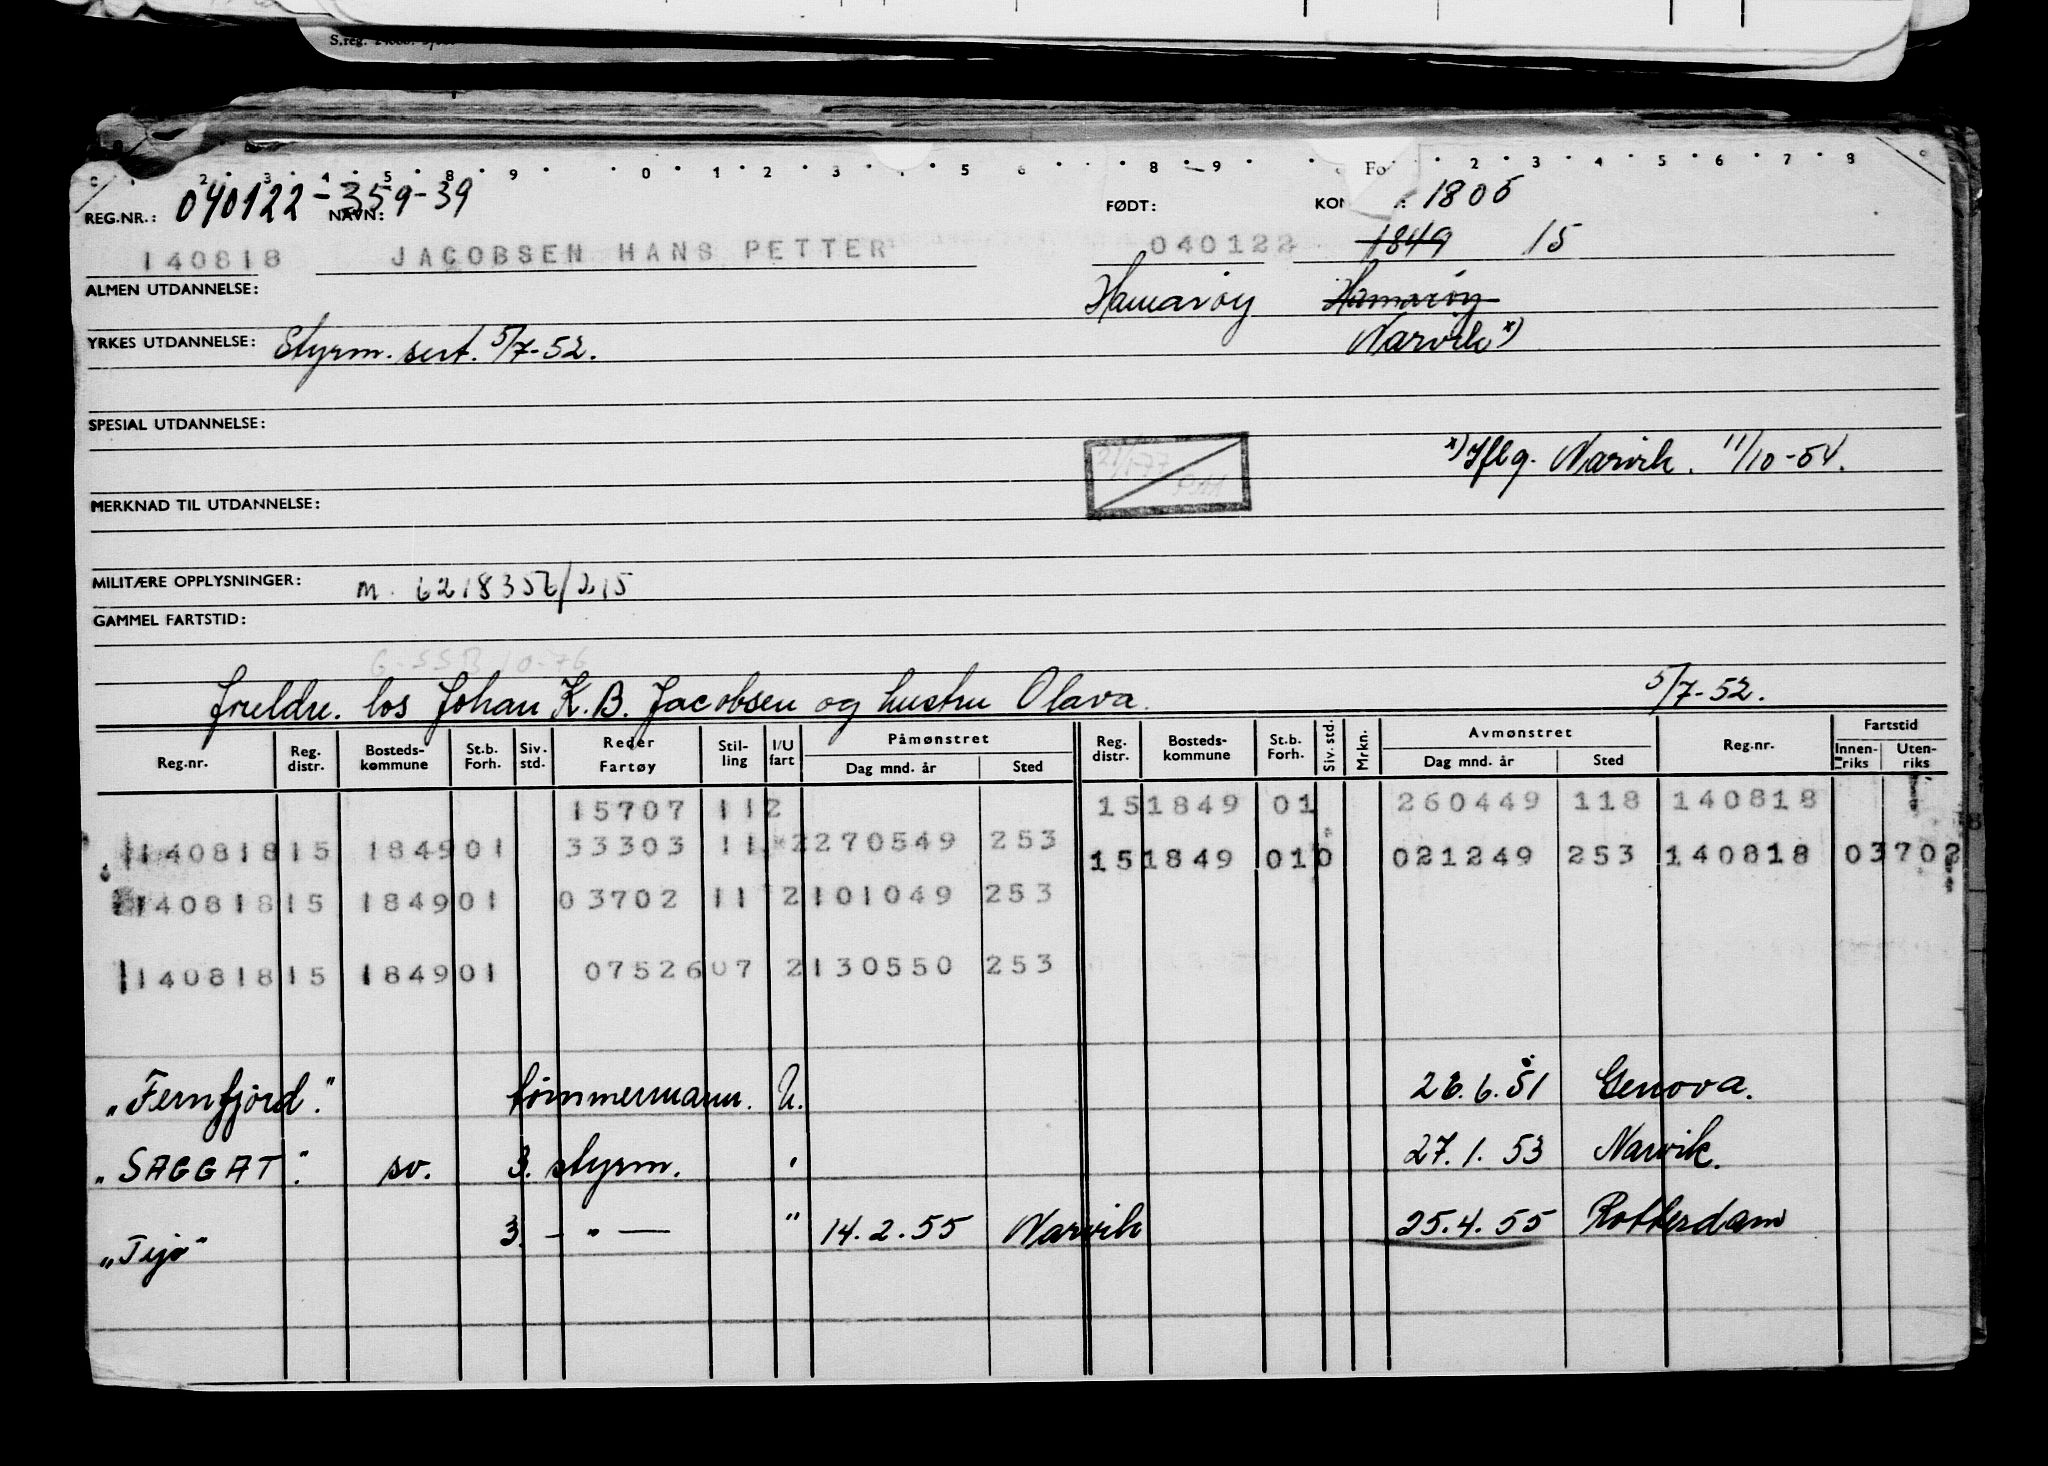 S.reg.
REG.NR.: 040122-359-39 NAVN: FØDT: 1805
140818 JACOBSEN HANS PETTER 040122 1849 15
ALMEN UTDANNELSE: Hamarøy Hamarøy
YRKES UTDANNELSE: Styrm. sert. 5/7-52. Narvik x)
SPESIAL UTDANNELSE:
x) Iflg. Narvik. 11/10-54.
MERKNAD TIL UTDANNELSE:
MILITÆRE OPPLYSNINGER: m. 6218356/215
GAMMEL FARTSTID:
foreldre. los Johan K.B. Jacobsen og hustru Olava. 5/7-52.
Reg.nr. Reg. distr. Bosteds- kommune St.b. Forh. Siv. std. Reder Fartøy Stil- ling I/U fart Påmønstret Dag mnd. år Sted Reg. distr. Bosteds- kommune St.b. Forh. Siv. std. Mrkn. Avmønstret Dag mnd. år Sted Reg.nr. Fartstid Innen- riks Uten- riks
15707 11 2 15 1849 01 260449 118 140818
140818 15 1849 01 33303 11 2 270549 253 15 1849 01 0 021249 253 140818 03 702
140818 15 1849 01 03702 11 2 101049 253
140818 15 1849 01 07526 07 2 130550 253
"Fernfjord." tømmermann. U. 26.6.51 Genova.
"SAGGAT". sv. 3. styrm. " 27.1.53 Narvik.
"Tejo" 3. - " - " 14.2.55 Narvik 25.4.55 Rotterdam